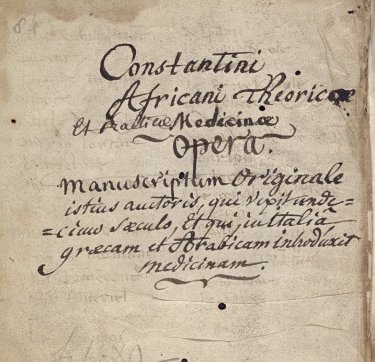 84
Constantini
Africani Theoricæ
Et Practicæ Medicinæ
Opera.
Manuscriptum Originale
istius auctoris, qui vixit unde=
=cimo sæculo, et qui, in italiâ
græcam et Arabicam introduxit
medicinam.